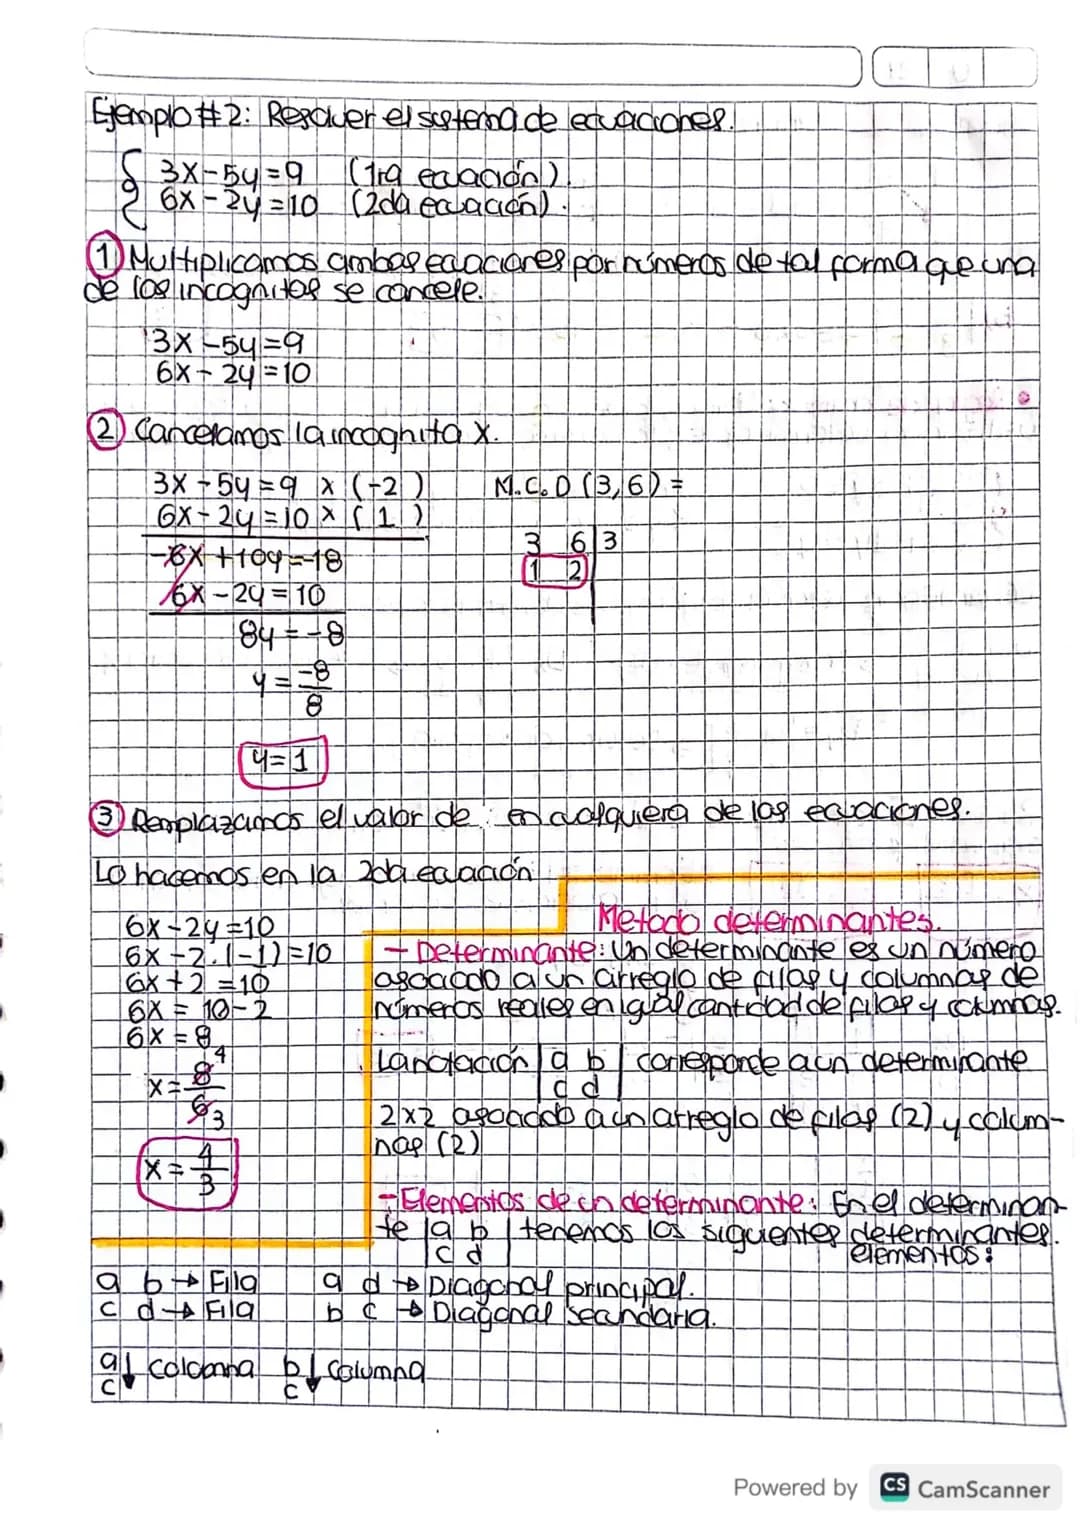 Ejemplo #2: Resolver el sistema de ecuaciones.
3x-5y=9 (1ra ecuación).
6x-2y=10 (2da ecuación).
1 Multiplicamos ambas ecuaciones por números de tal forma que una
de las incognitas se cancele.
3x-5y=9
6x-2y=10
2 Cancelamos la incognita x.
3x-5y=9 x (-2) M.C.D (3,6) =
6x-2y=10 x (1)
3 6 | 3
-6x+10y=-18
1 2
6x-2y=10
8y=-8
y=-8/8
y=1
3 Remplazamos el valor de : en cualquiera de las ecuaciones.
Lo hacemos en la 2da ecuación
6x-2y=10
6x-2.(-1)=10
6x+2=10
6x=10-2
6x=8
x=8/6 4 3
x=4/3
Metodo determinantes.
- Determinante: Un determinante es un número
asociado a un arreglo de filas y columnas de
números reales en igual cantidad de filas y columnas.
La notación |a b| corresponde a un determinante
|c d|
2x2 asociado a un arreglo de filas (2) y colum-
nas (2)
- Elementos de un determinante: En el determinan-
te |a b| tenemos los siguientes determinantes.
|c d| elementos:
a b → Fila a d → Diagonal principal.
c d → Fila b c → Diagonal secundaria.
a ↓ columna b ↓ columna
c c
Powered by CS CamScanner